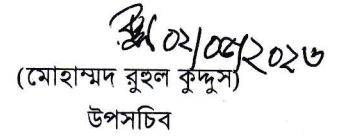 ০২/০৫/২০২৩
(মোহাম্মদ রুহুল কুদ্দুস)
উপসচিব